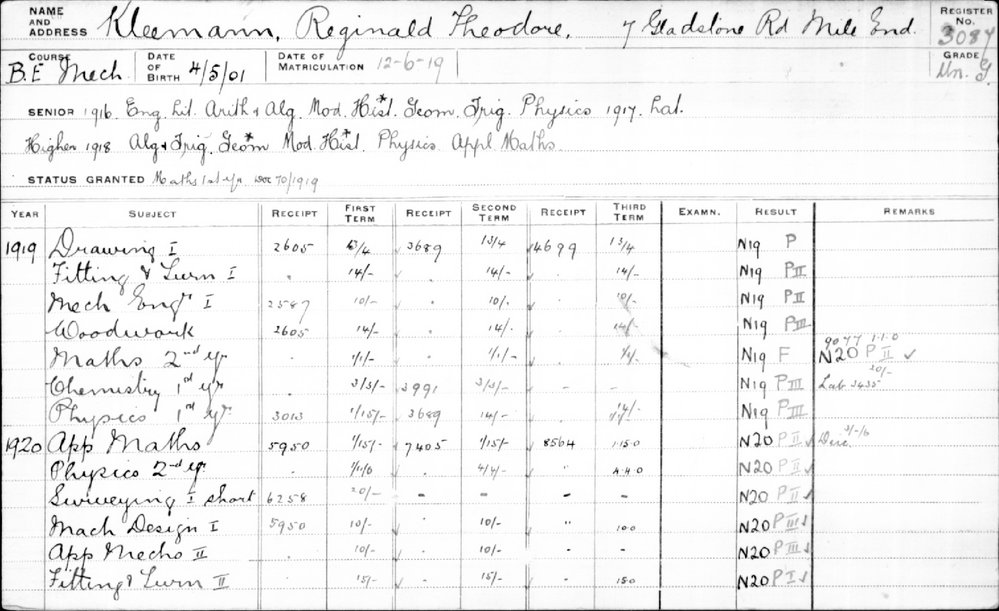 NAME AND ADDRESS Kleemann, Reginald Theodore, 7 Gladstone Rd Mile End. REGISTER No. 3084
COURSE B.E Mech DATE OF BIRTH 4/5/01 DATE OF MATRICULATION 12-6-19 GRADE Un. G.
SENIOR 1916 Eng. Lit. Arith & Alg. Mod. Hist.* Geom. Trig. Physics 1917 Lat.
Higher 1918 Alg & Trig. Geom* Mod. Hist.* Physics Appl Maths.
STATUS GRANTED Maths 1st yr 70/1919
YEAR SUBJECT RECEIPT FIRST TERM RECEIPT SECOND TERM RECEIPT THIRD TERM EXAMN. RESULT REMARKS
1919 Drawing I 2605 13/4 3689 13/4 4699 13/4 N19 P
Fitting & Turn I . 14/- . 14/- . 14/- N19 PII
Mech Engr I 2587 10/- . 10/. . 10/- N19 PII
Woodwork 2605 14/- . 14/- . 14/- N19 PIII
Maths 2nd yr . 1/1/- . 1/1/- . 1/1/- N19 F N20 PII ✓ 9077 1.1.0
Chemistry 1st yr . 3/3/- 3991 3/3/- - - N19 PIII Lab 3435 20/-
Physics 1st yr. 3013 1/15/- 3689 14/- . 14/- N19 PIII
1920 App Maths 5950 1/15/- 7405 1/15/- 8564 1.15.0 N20 PII ✓
Physics 2nd yr . . 4/4/- " 4.4.0 N20 PII ✓
Surveying I short 6258 20/- - - - - N20 PII ✓
Mach Design I 5950 10/- . 10/- " 10.0 N20 PIII ✓
App Mechs II . 10/- . 10/- - N20 PIII ✓
Fitting & Turn II . 15/- . 15/- 15.0 N20 PI ✓